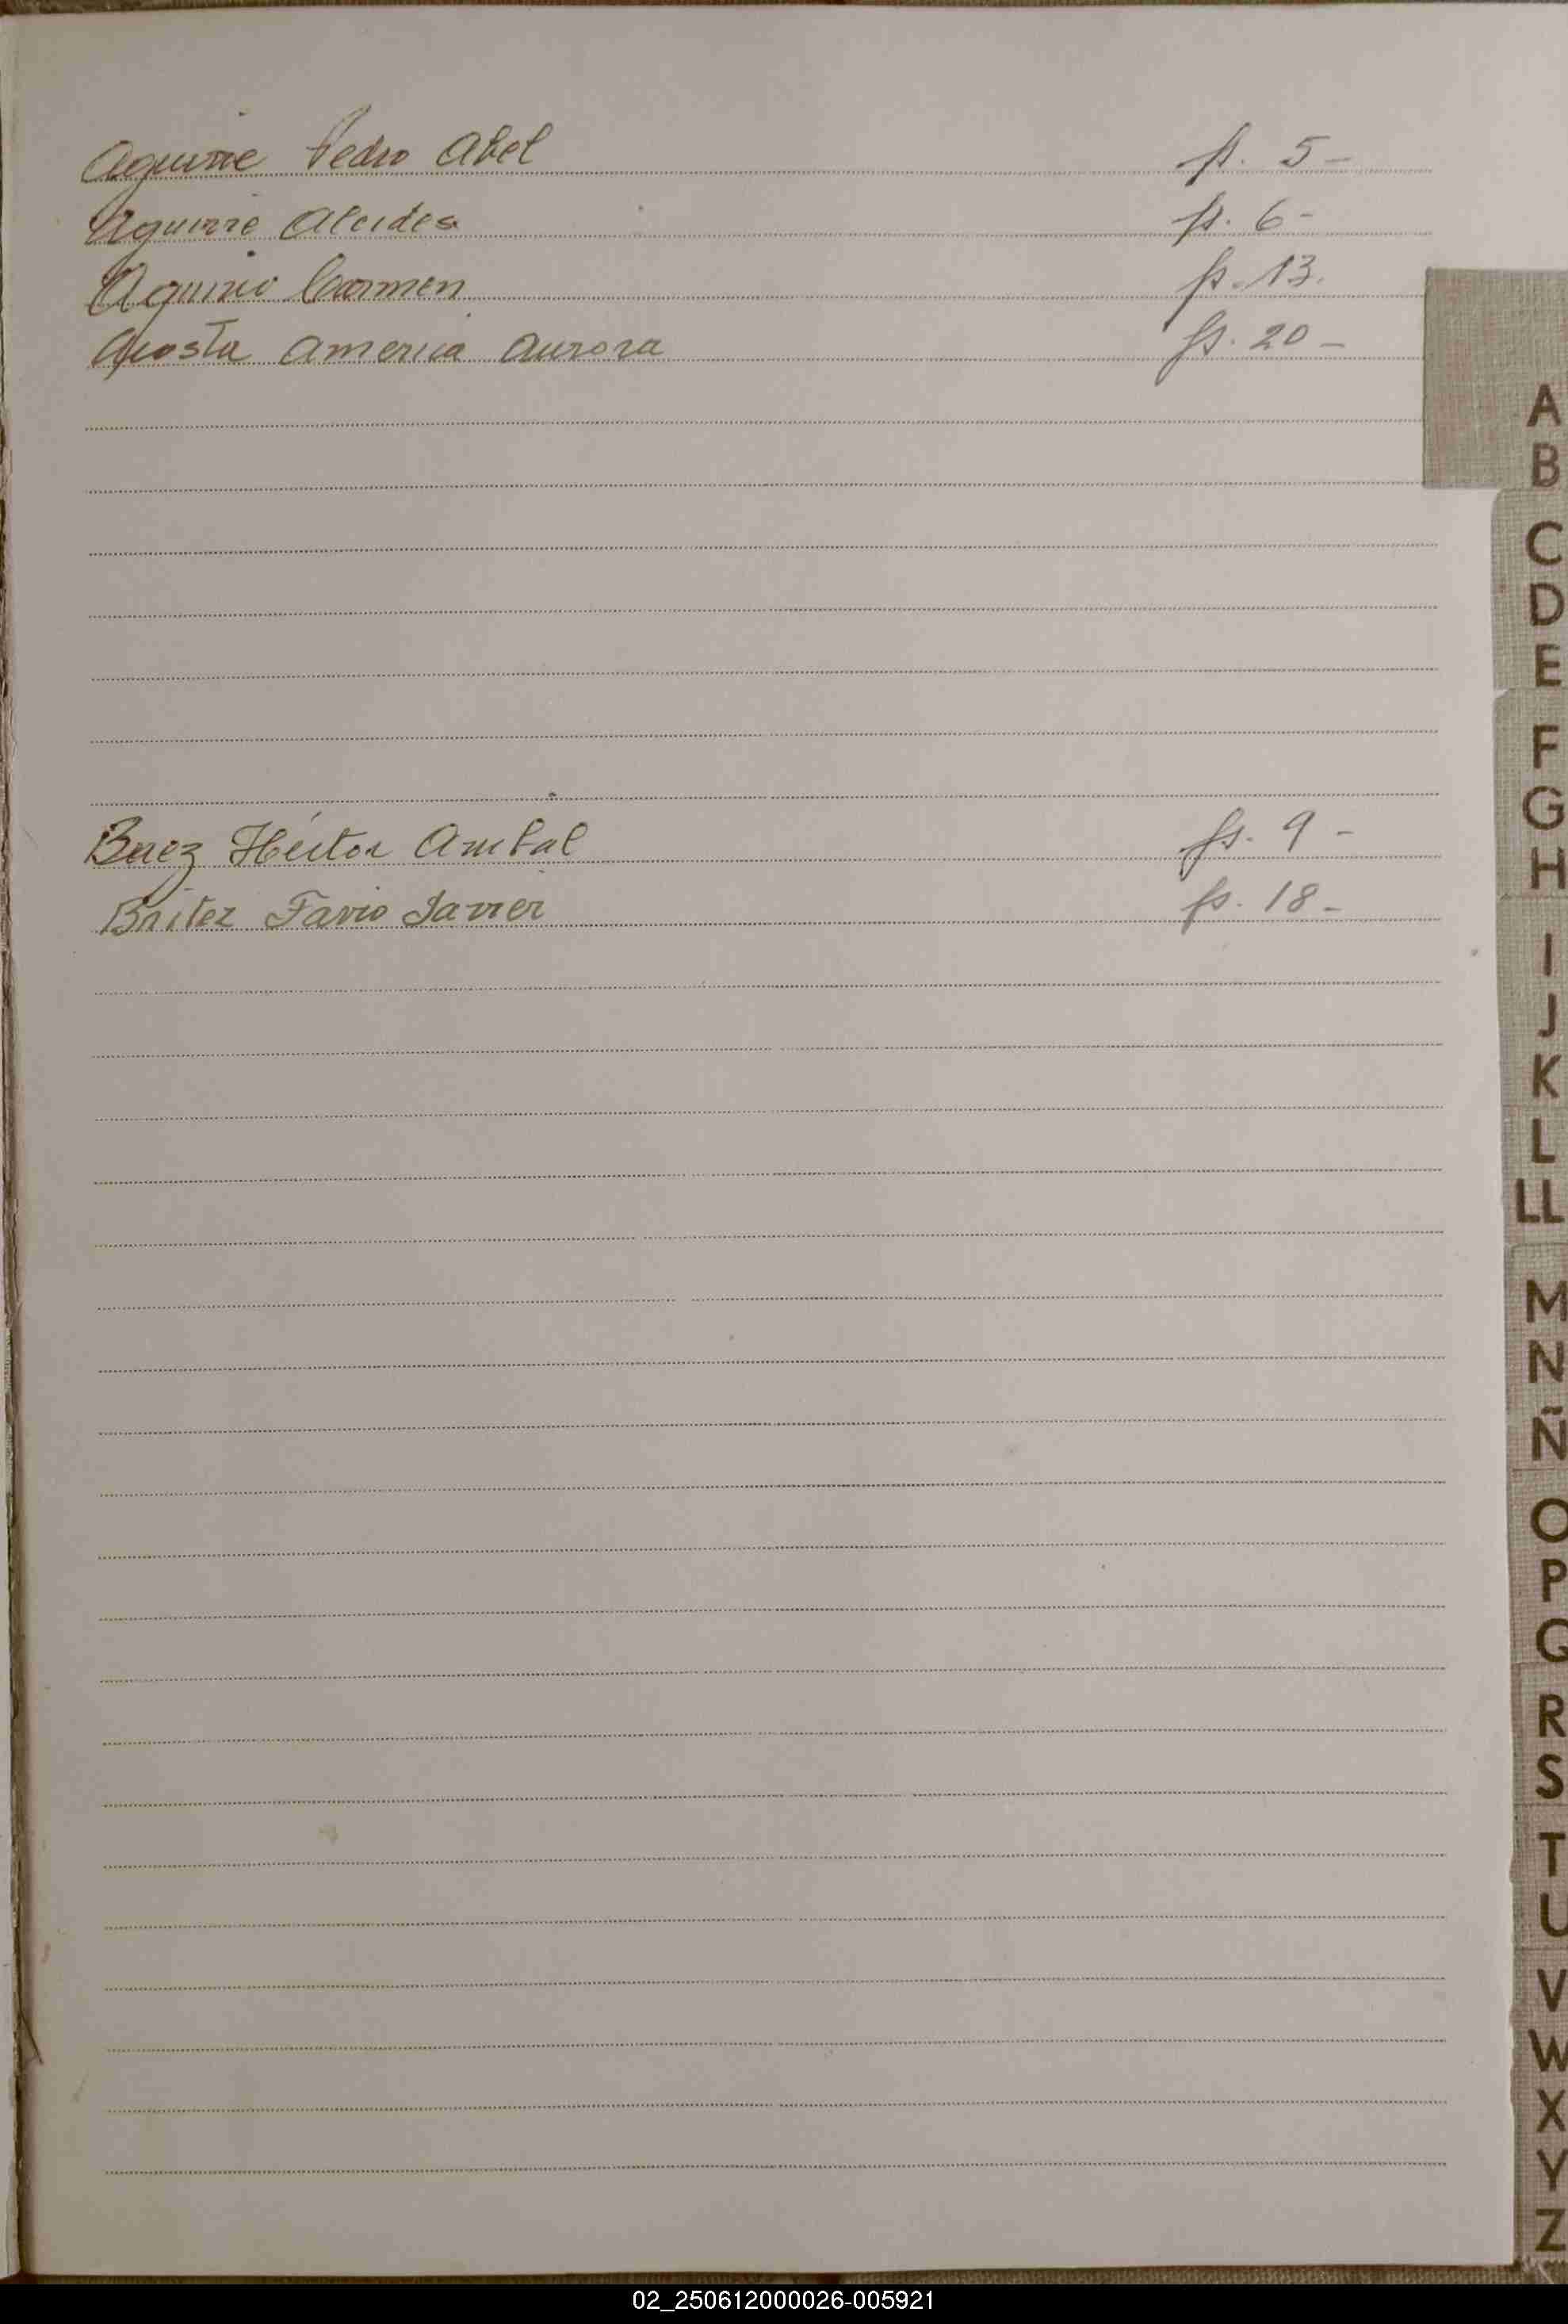 Aguirre Pedro Abel fs. 5-
Aguirre Alcides fs. 6-
Aguirre Carmen fs. 13.
Acosta America Aurora fs. 20-
Baez Héctor Anibal fs. 9-
Benitez Favio Javier fs. 18-
A
B
C
D
E
F
G
H
I
J
K
L
LL
M
N
Ñ
O
P
Q
R
S
T
U
V
W
X
Y
Z
02_250612000026-005921